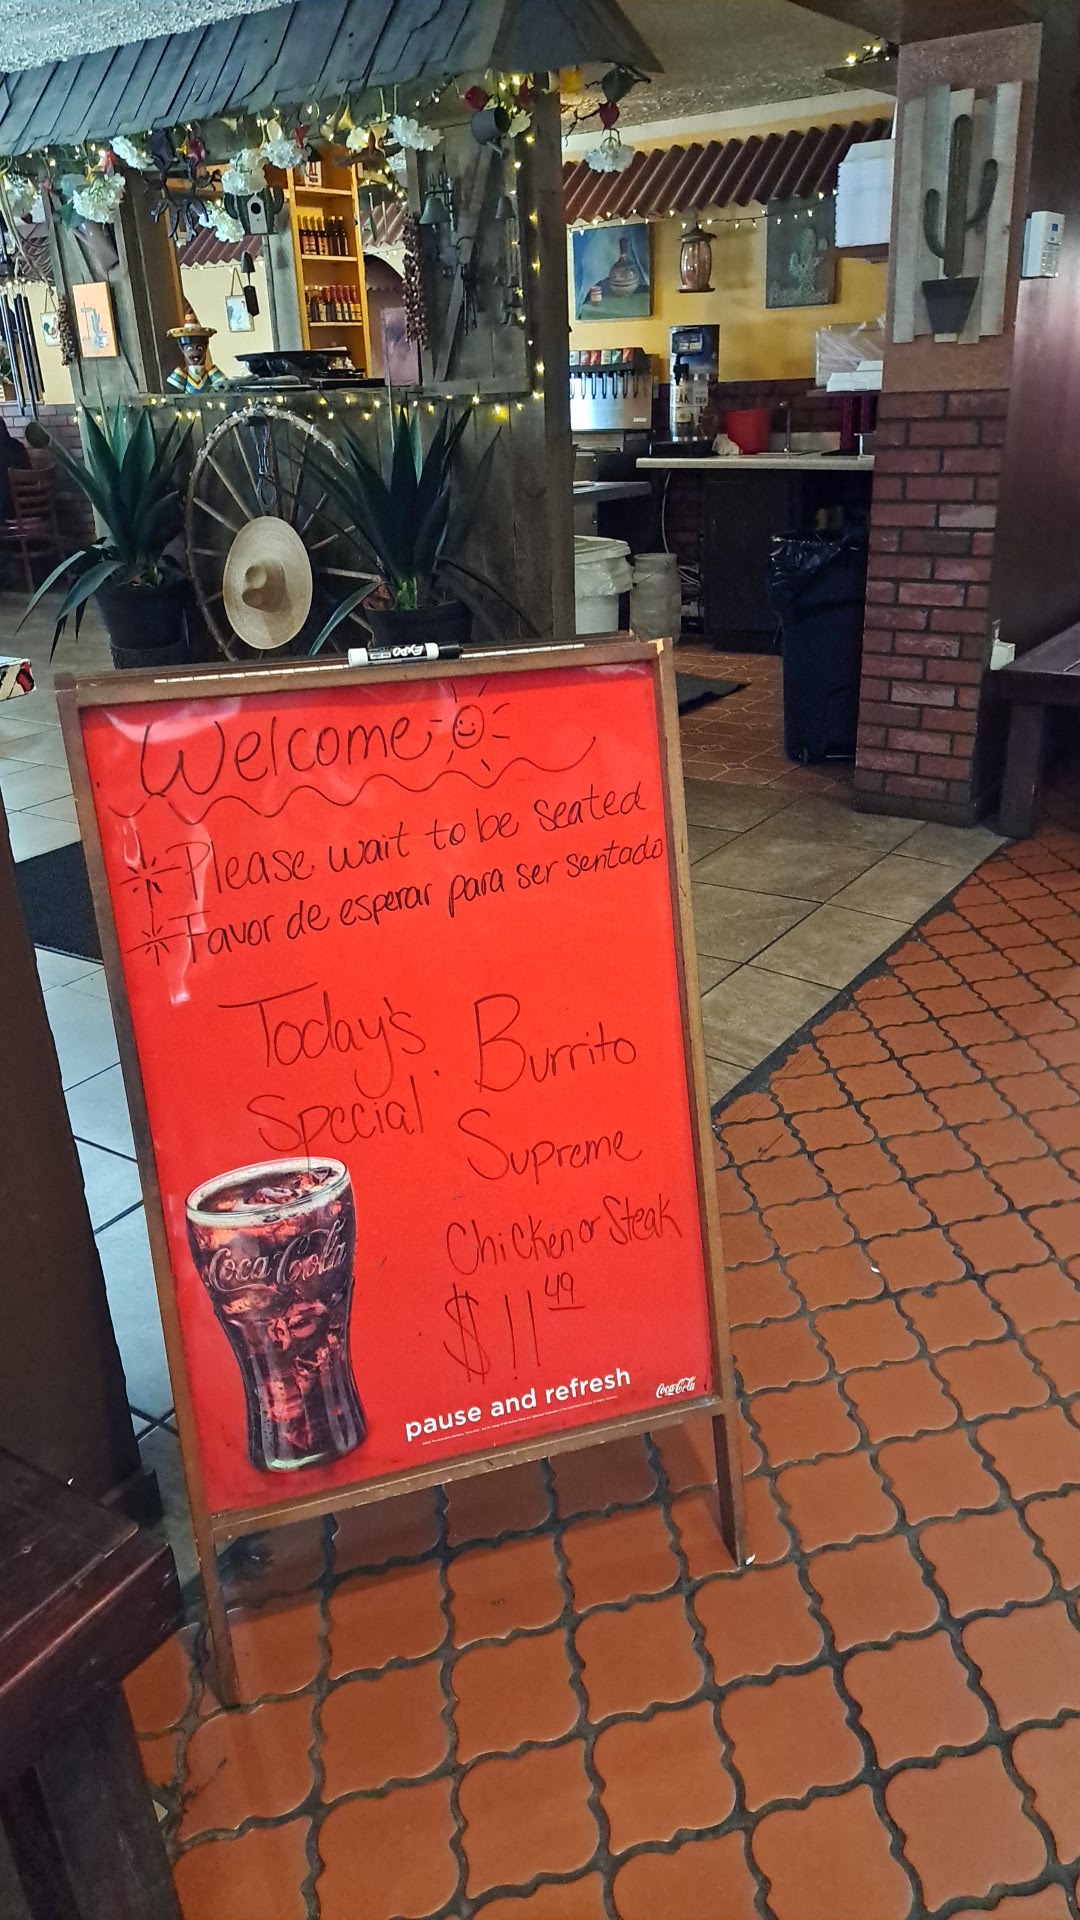 EXPO
Welcome
Please wait to be seated
Favor de esperar para ser sentado
Today's
Special.
Burrito
Supreme
Chicken or Steak
$11 49
Coca-Cola
pause and refresh
Coca-Cola